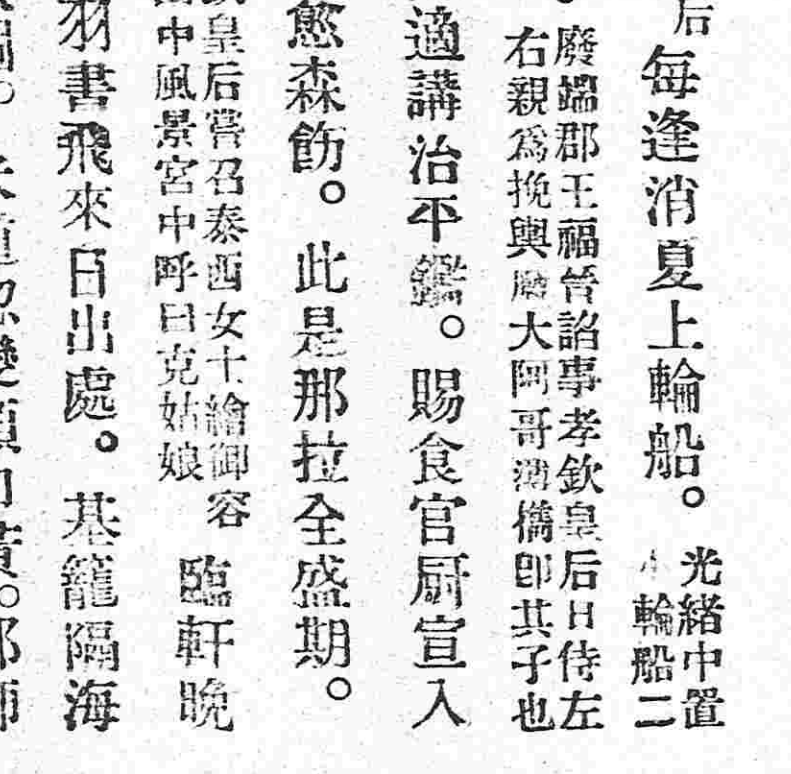 后
每逢消夏上輪船。
光緒中置
小輪船二
廢端郡王福晉諂事孝欽皇后日侍左
右親為挽輿廢大阿哥溥儁即其子也
適講治平鑑。賜食官厨宣入
愈森飭。此是那拉全盛期。
皇后嘗召泰西女士繪御容
中風景宮中呼曰克姑娘
臨軒晚
羽書飛來日出處。基籠隔海